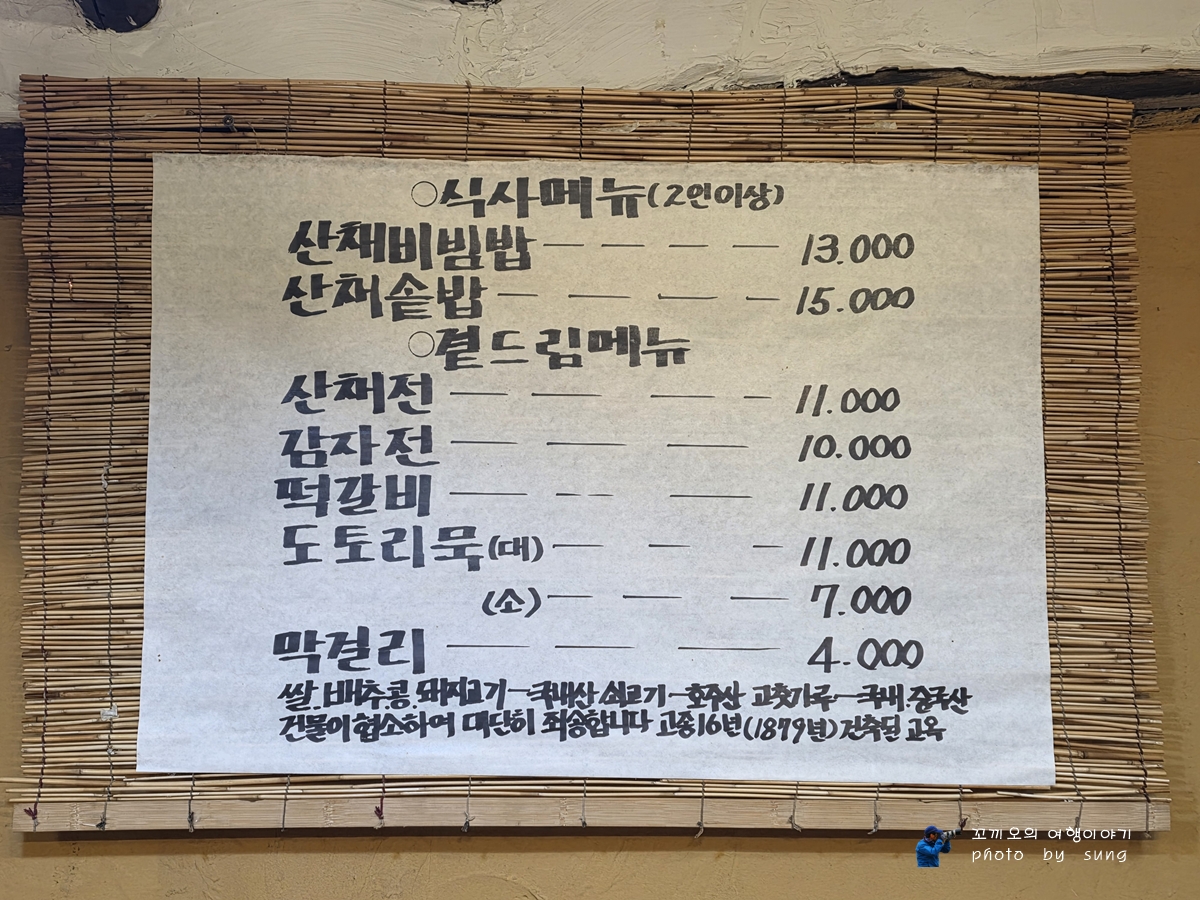 ○식사메뉴(2인이상)
산채비빔밥 13.000
산채솥밥 15.000
○곁드림메뉴
산채전 11.000
감자전 10.000
떡갈비 11.000
도토리묵(대) 11.000
(소) 7.000
막걸리 4.000
쌀.배추.콩.돼지고기-국내산 쇠고기-호주산 고춧가루-국내.중국산
건물이 협소하여 대단히 죄송합니다 고종16년(1879년)건축된 고옥
꼬끼오의 여행이야기
photo by sung